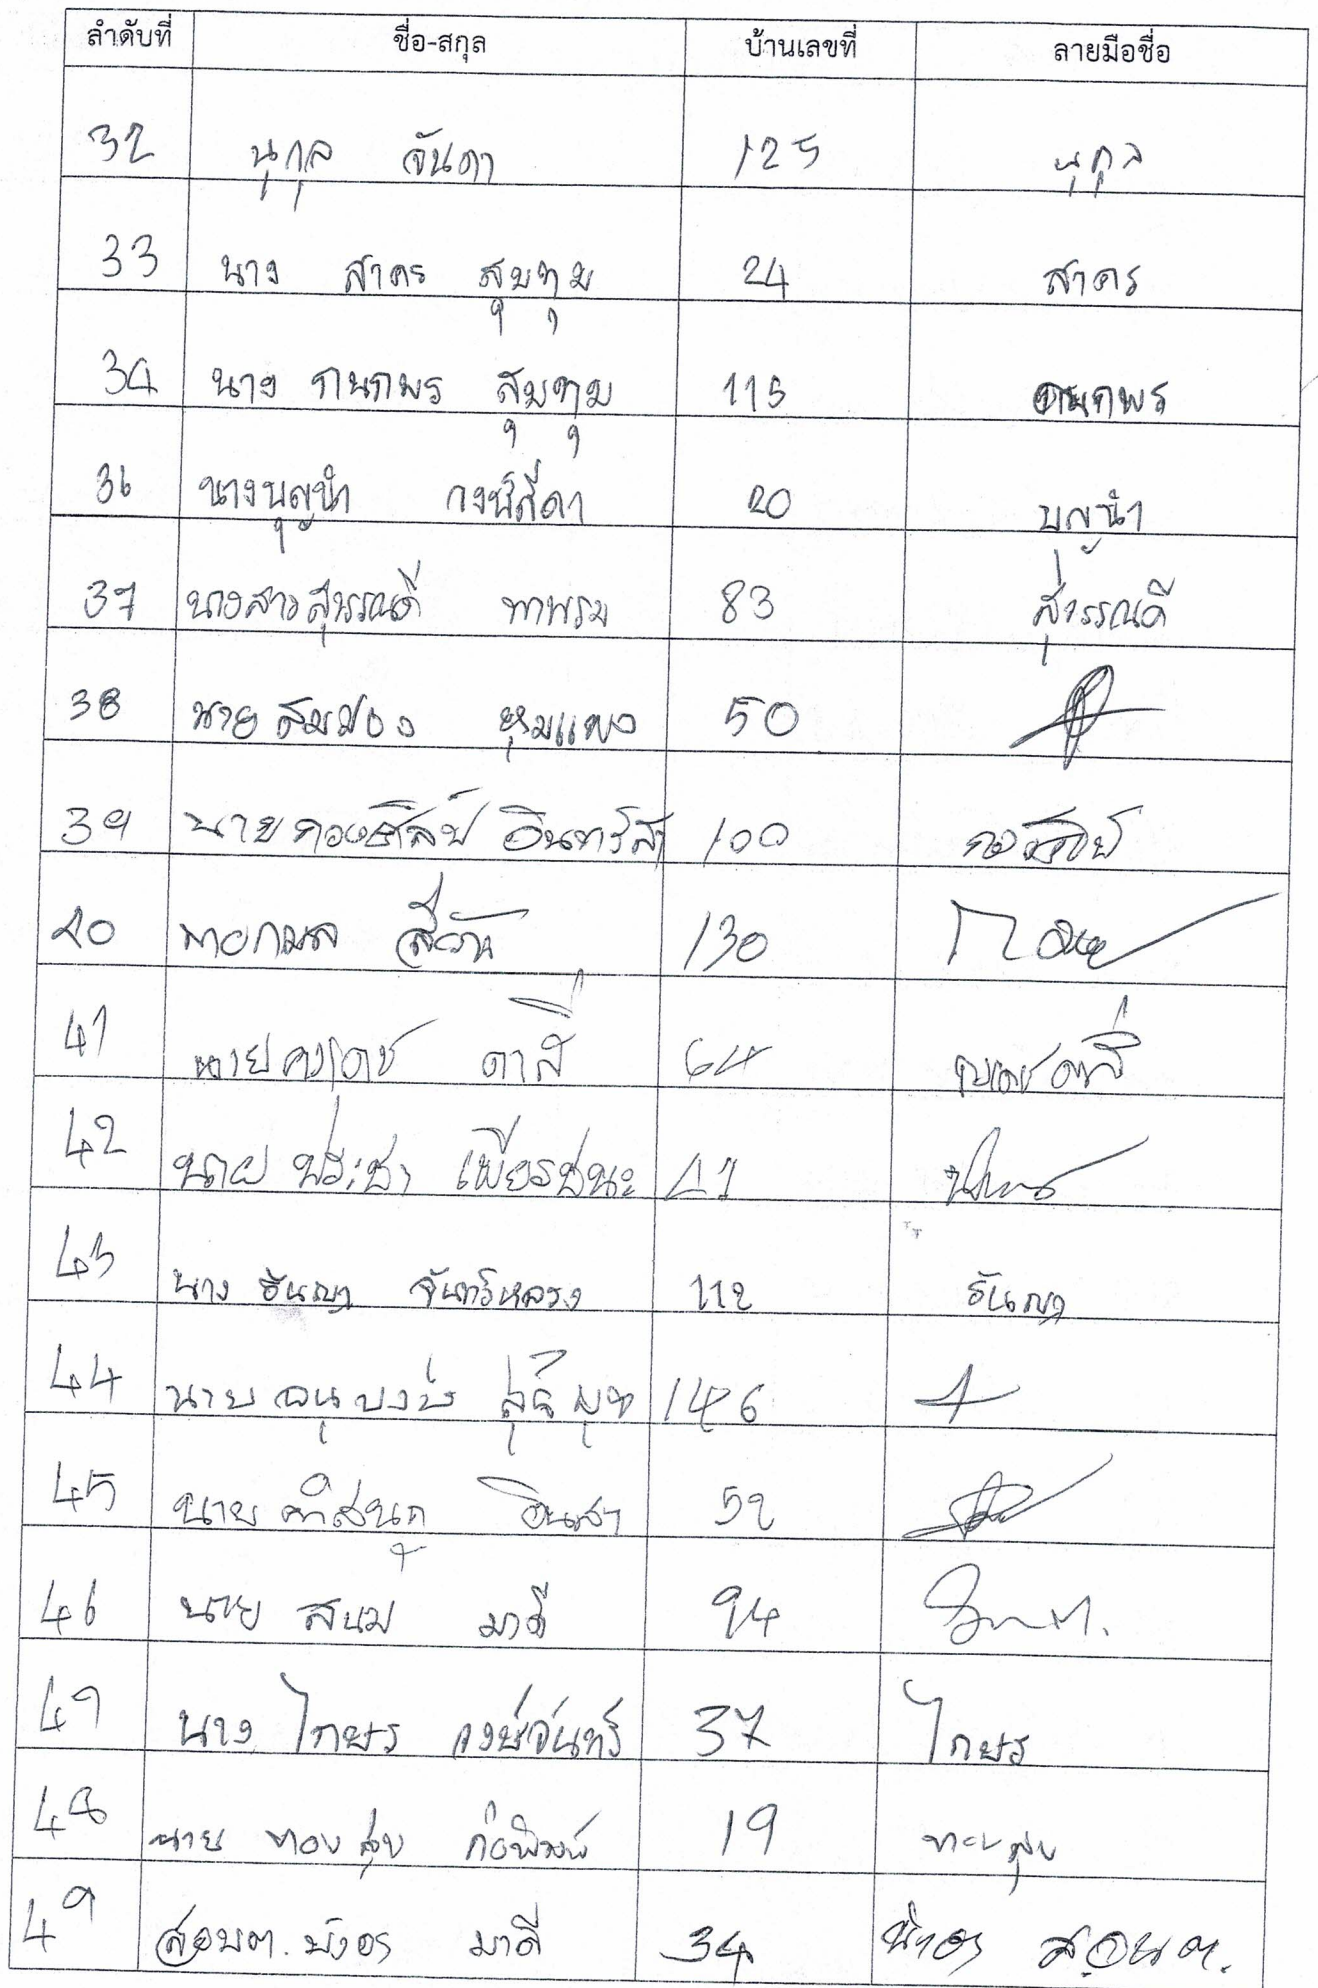 ลำดับที่ ชื่อ-สกุล บ้านเลขที่ ลายมือชื่อ
32 นุกุล จันดา 125 นุกูล
33 นาง สาคร สุมทุม 24 สาคร
34 นาง กนกพร สุมทุม 115 กนกพร
36 นางบุญนำ วงษ์สีดา 20 บุญนำ
37 นางสาวสุวรรณดี ทาพรม 83 สุวรรณดี
38 นาย สมปอง หุมแพง 50
39 นาย อินทร์สา 100
40 กมล สีวัน 130
41 นาย ดาสี 64
42 นาย ประชา เพียรชนะ 41
43 นาง ธัญญา จันทร์หลวง 112 ธัญญา
44 นาย 146
45 นาย คำสนท อินสา 52
46 นาย สนม มาดี 94
47 นาง ไกษร วงษ์จันทร์ 37 ไกษร
48 นาย ทองสุข ก่อพิมพ์ 19 ทองสุข
49 ส.อบต. บังอร มาดี 34 บังอร ส.อบต.